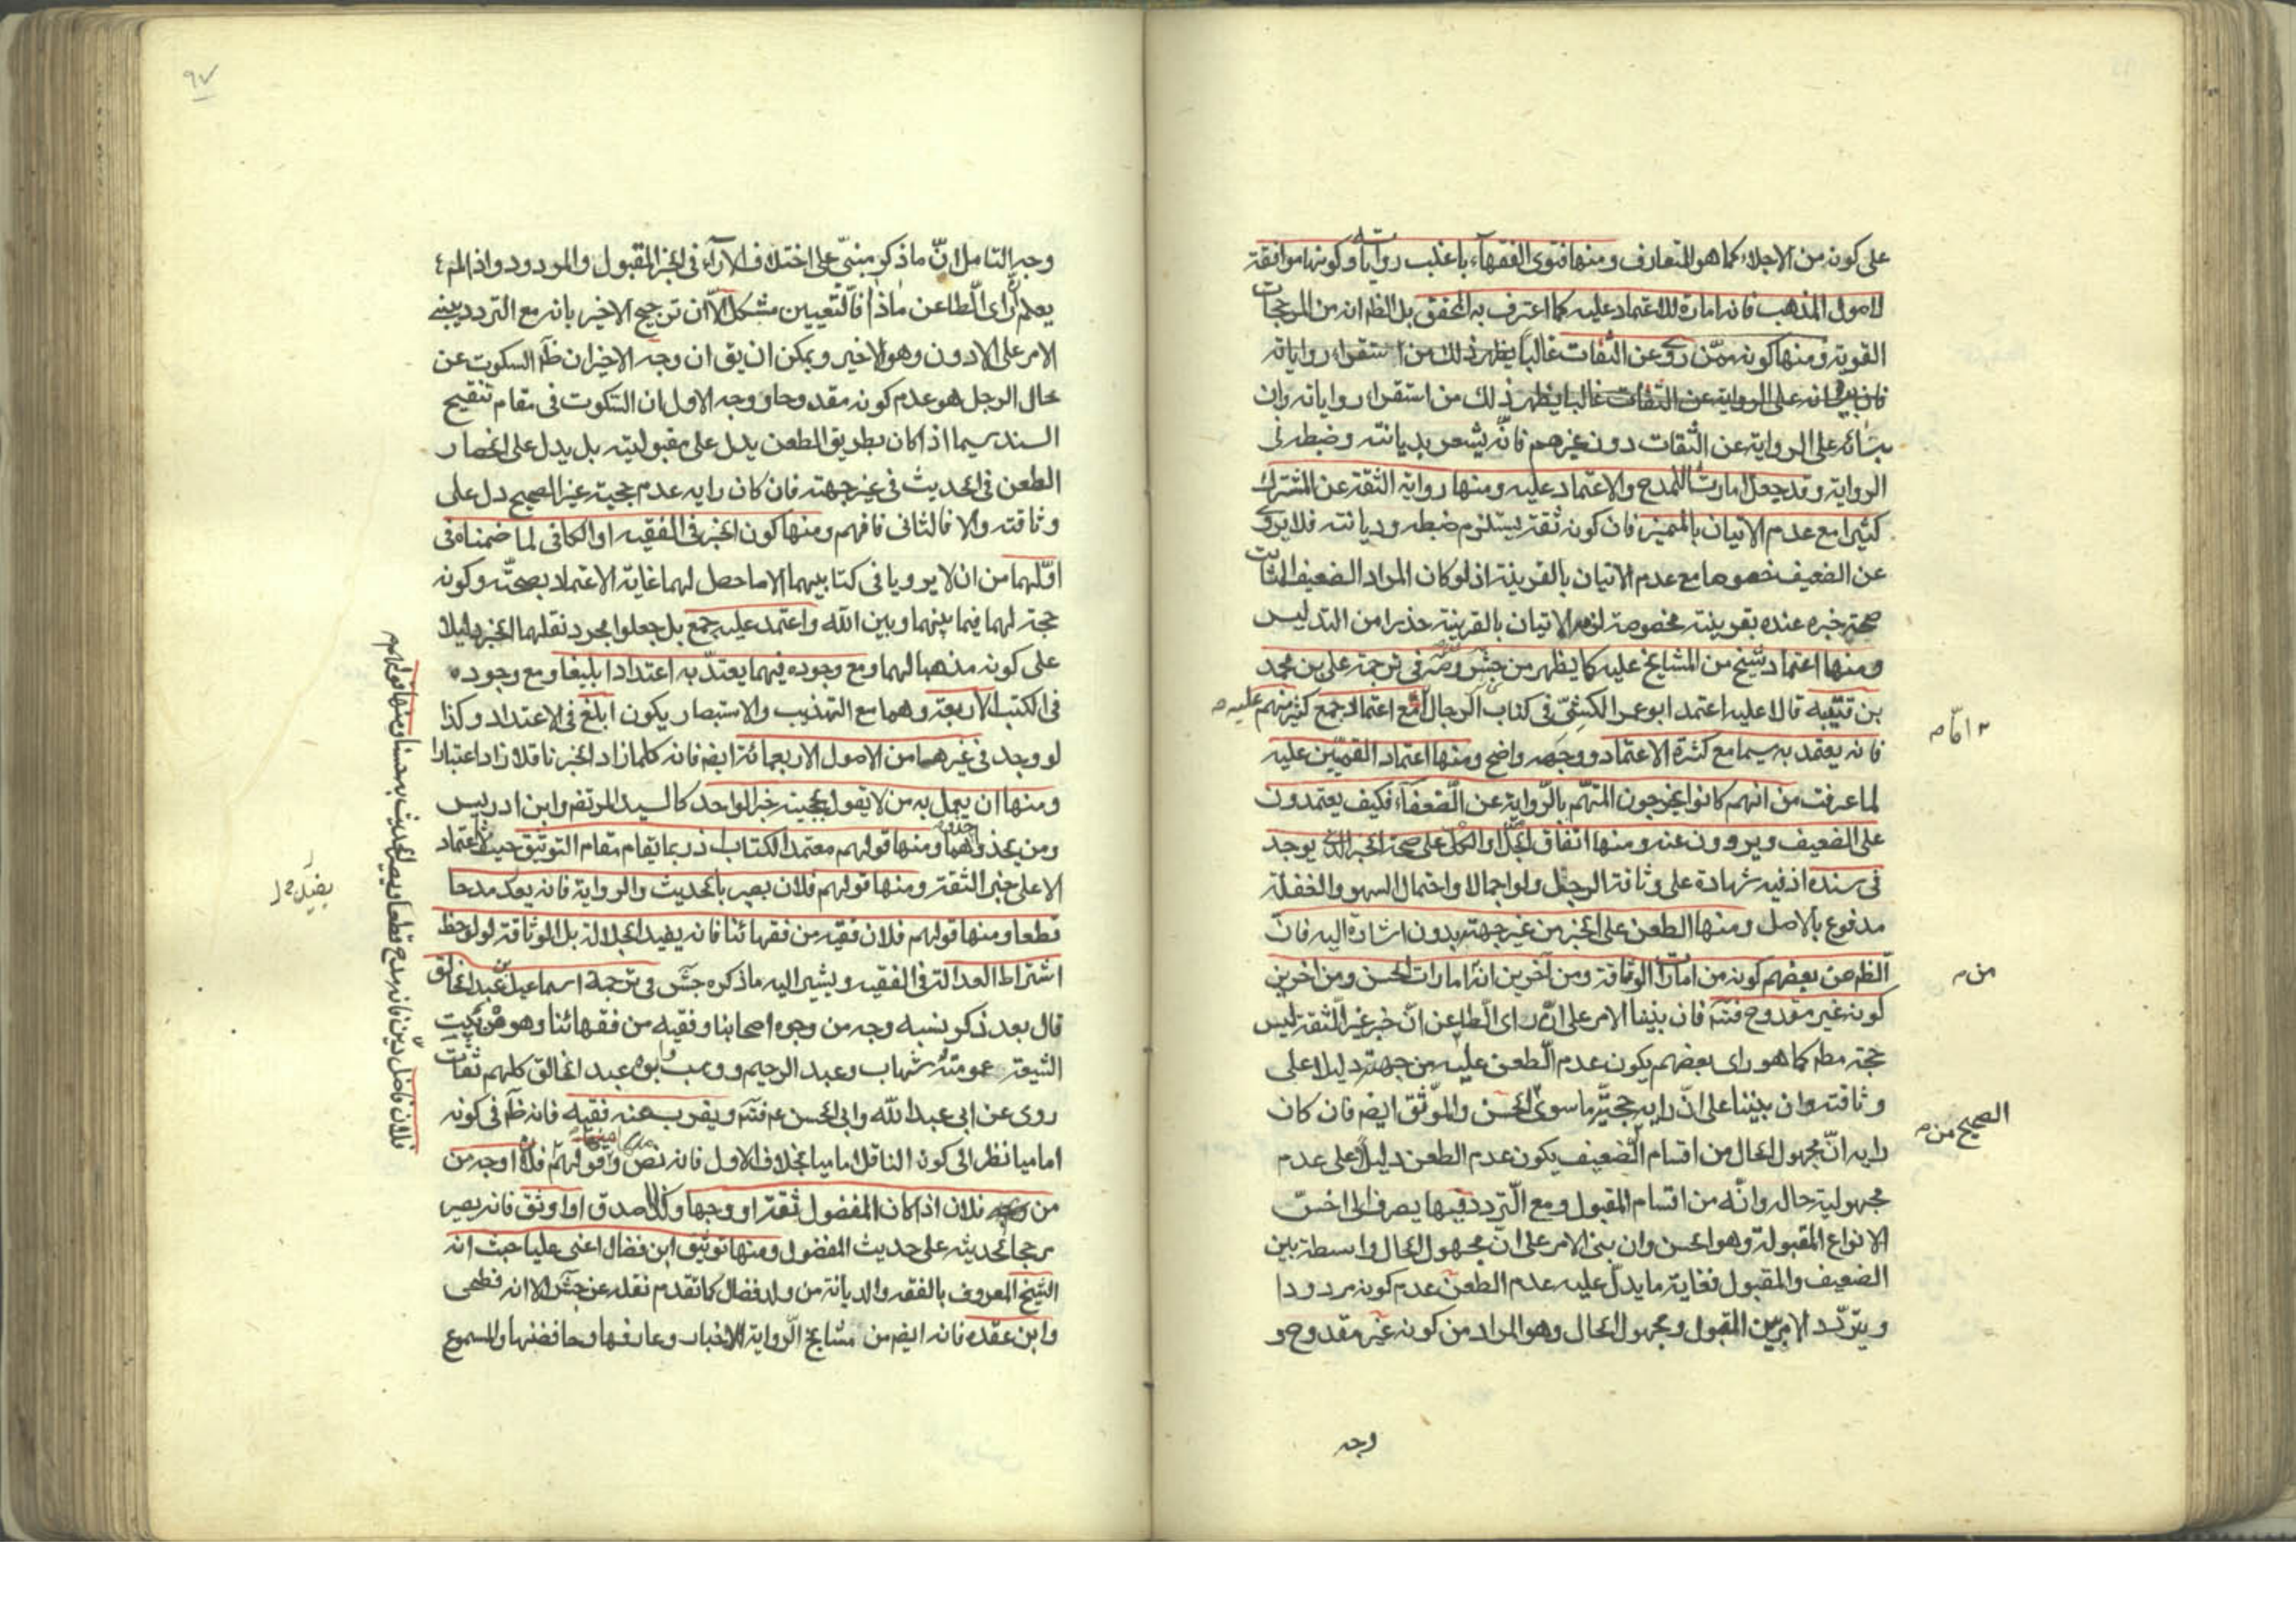 على كونه من الاجلاء كما هو المتعارف ومنها فتوى الفقهاء باغلب رواياته وكونها موافقة
لاصول المذهب فانه امارة للاعتماد عليه كما اعترف به المحقق بل الظ انه من المرجحات
القوية ومنها كونه ممن روى عن الثقات غالبا يظهر ذلك من استقراء رواياته
على الرواية عن الثقات غالبا يظهر ذلك من استقراء رواياته وان
بنائه على الرواية عن الثقات دون غيرهم فانه يشعر بديانته وضبطه فى
الرواية وقد جعل امارت للمدح والاعتماد عليه ومنها رواية الثقة عن المشترك
كثيرا مع عدم الاتيان بالمميز فان كونه ثقة يستلزم ضبطه وديانته فلا يروى
عن الضعيف خصوصا مع عدم الاتيان بالقرينة اذ لو كان المراد الضعيف الثابت
صحة خبره عنده بقرينة مخصوصة لزم الاتيان بالقرينة حذرا من التدليس
ومنها اعتماد شيخ من المشايخ عليه كما يظهر من جش وصه فى ترجمة على بن محمد
بن قتيبه قالا عليه اعتمد ابو عمر الكشى فى كتاب الرجال مع اعتماد جمع كثير منهم عليه
٢ امّا م
فانه يعتقد به سيما مع كثرة الاعتماد ووجهه واضح ومنها اعتماد القميين عليه
لما عرفت من انهم كانوا يخرجون المتهم بالرواية عن الضعفاء فكيف يعتمدون
على الضعيف ويروون عنه ومنها اتفاق الجل او الكل على صحة الخبر الذى يوجد
فى سنده اذ فيه شهادة على وثاقة الرجل ولو اجمالا واحتمال السهو والغفلة
مدفوع بالاصل ومنها الطعن على الخبر من غير جهته بدون اشارة اليه فان
الظ من بعضهم كونه من امارات الوثاقة ومن آخرين انه امارات الحسن ومن اخرين
من م
كونه غير مقدوح فتئم فان بنينا الامر على ان راى الطاعن ان خبر غير الثقة ليس
حجة مطم كما هو راى بعضهم يكون عدم الطعن عليه من جهته دليلا على
وثاقته وان بنينا على ان رايه حجية ما سوى الحسن والموثق ايضم فان كان
الصحيح من م
رايه ان مجهول الحال من اقسام الضعيف يكون عدم الطعن دليلا على عدم
مجهولية حاله وانه من اقسام المقبول ومع التردد فيها يصرف الى اخس
الانواع المقبولة وهو الحسن وان بنى الامر على ان مجهول الحال واسطة بين
الضعيف والمقبول فغاية ما يدل عليه عدم الطعن عدم كونه مردودا
ويتردد الامر بين المقبول ومجهول الحال وهو المراد من كونه غير مقدوح و
وجه
٩٧
وجه التامل ان ما ذكر مبنى على اختلاف الاراء فى الخبر المقبول والمردود واذا لم
يعلم ان راى الطاعن ماذا فالتعيين مشكل الا ان ترجيح الاخير بانه مع التردد يبنى
الامر على الادون وهو الاخير ويمكن ان يق ان وجه الاخير ان ظ السكوت عن
حال الرجل هو عدم كونه مقدوحا ووجه الاول ان السكوت فى مقام تنقيح
السند سيما اذا كان بطريق الطعن يدل على مقبوليته بل يدل على انحصار
الطعن فى الحديث فى غير جهته فان كان رايه عدم حجية غير الصحيح دل على
وثاقته والا فالثانى فافهم ومنها كون الخبر فى الفقيه او الكافى لما ضمناه فى
اولهما من ان لا يرويا فى كتابيهما الا ما حصل لهما غاية الاعتماد بصحته وكونه
حجة لهما فيما بينهما وبين الله واعتمد عليه جمع بل جعلوا مجرد نقلهما الخبر دليلا
على كونه مذهبا لهما ومع وجوده فيهما يعتد به اعتدادا بليغا ومع وجوده
فى الكتب الاربعة وهما مع التهذيب والاستبصار يكون ابلغ فى الاعتداد وكذا
لو وجد فى غيرهما من الاصول الاربعمائة ايضم فانه كلما زاد الخبر ناقلا زاد اعتبارا
ومنها ان يعمل به من لا يقول بحجية خبر الواحد كالسيد المرتضى وابن ادريس
ومن يحذو حذوهما ومنها قولهم معتمد الكتاب اذ ربما يقام مقام التوثيق حيث لا اعتماد
الا على خبر الثقة ومنها قولهم فلان بصير بالحديث والرواية فانه يعد مدحا
يفيد
قطعا ومنها قولهم فلان فقيه من فقهائنا فانه يفيد الجلالة بل الوثاقة لو لوحظ
اشتراط العدالة فى الفقيه ويشير اليه ما ذكره جش فى ترجمة اسماعيل بن عبد الخالق
قال بعد ذكر نسبه وجه من وجوه اصحابنا وفقيه من فقهائنا وهو من بيت
الشيعة عمومته شهاب وعبد الرحيم ووهب وابوه عبد الخالق كلهم ثقات
روى عن ابى عبد الله وابى الحسن ع فتئم ويقرب منه فقيه فانه ظ فى كونه
اماميا نظرا الى كون الناقل اماميا بخلاف الاول فانه نص ومنها قولهم فلان اوجه من
من فلان اذا كان المفضول ثقة او وجها وكذا اصدق او اوثق فانه يصير
مرجحا لحديثه على حديث المفضول ومنها توثيق ابن فضال اعنى عليا حيث انه
الشيخ المعروف بالفقه والديانة من ولد فضال كما تقدم نقله عن جش الا انه فطحى
وابن عقده فانه ايضم من مشايخ الرواية والاخبار وعارفها وحافظها والمسموع
ومنها قولهم
فلان فاضل دين فانه مدح قطعا ويصير الحديث به حسنا ومنها قولهم